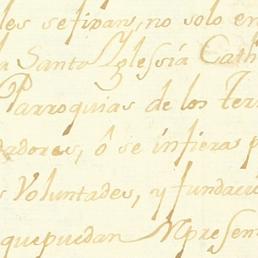 les se fixan, no solo en
a Santa Yglessia Cath
Parroquias de los Ter
dadores, ô se infieras p
s Voluntades, y fundacio
que puedan